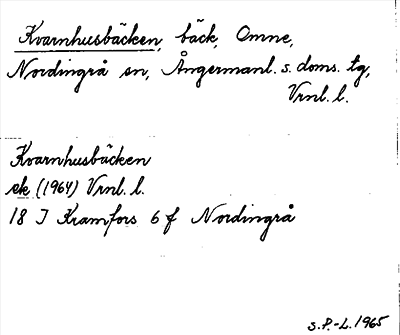 Kvarnhusbäcken, bäck, Omne,
Nordingrå sn, Ångermanl. s. doms. tg,
Vrnl. l.
Kvarnhusbäcken
ek (1964) Vrnl. l.
18 J Kramfors 6 f Nordingrå
S.P.-L. 1965